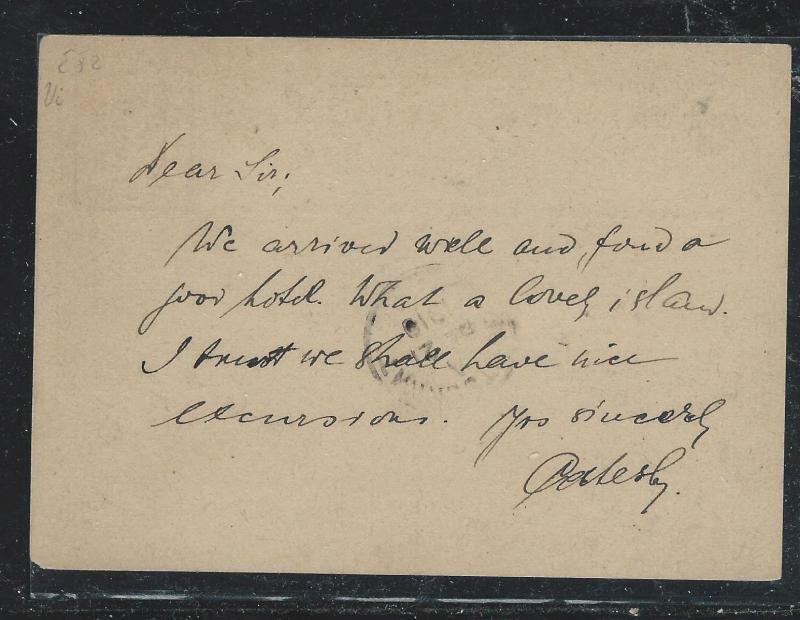 Dear Sir;
We arrived well and, fond a
good hotel. What a lovely island.
I trust we shall have nice
excursions. Yrs sincerely